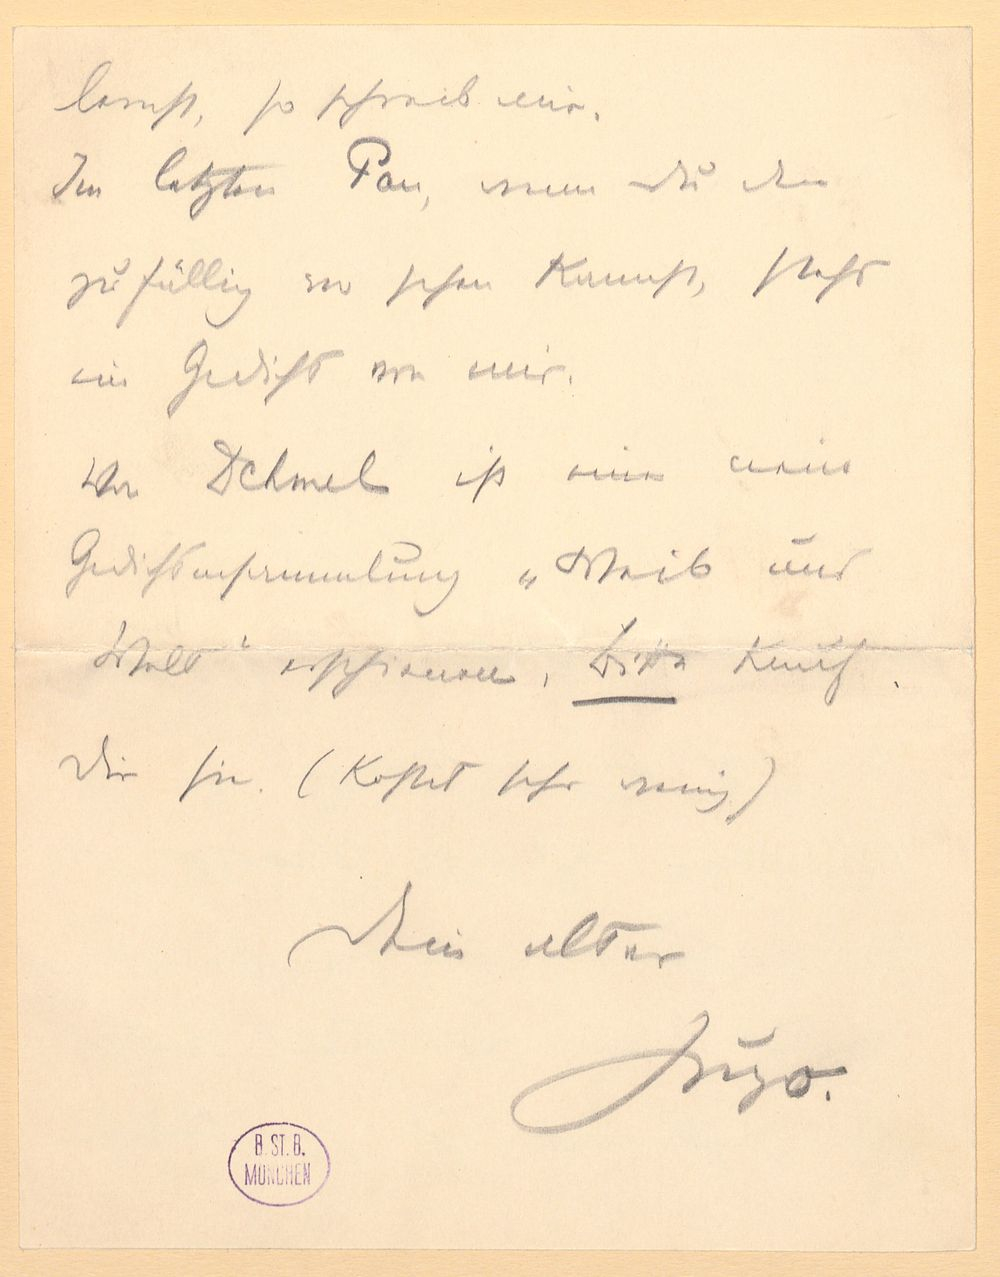 so schreib mir.
Im letzten Pan, wenn Du den
zufällig zu sehen kommst, steht
ein Gedicht von mir.
Von Dehmel ist eine neue
Gedichtsammlung „Weib und
Welt“ erschienen, Bitte Kauf
Dir sie. (Kostet sehr wenig)
Dein alter
Hugo.
B. ST. B.
MÜNCHEN